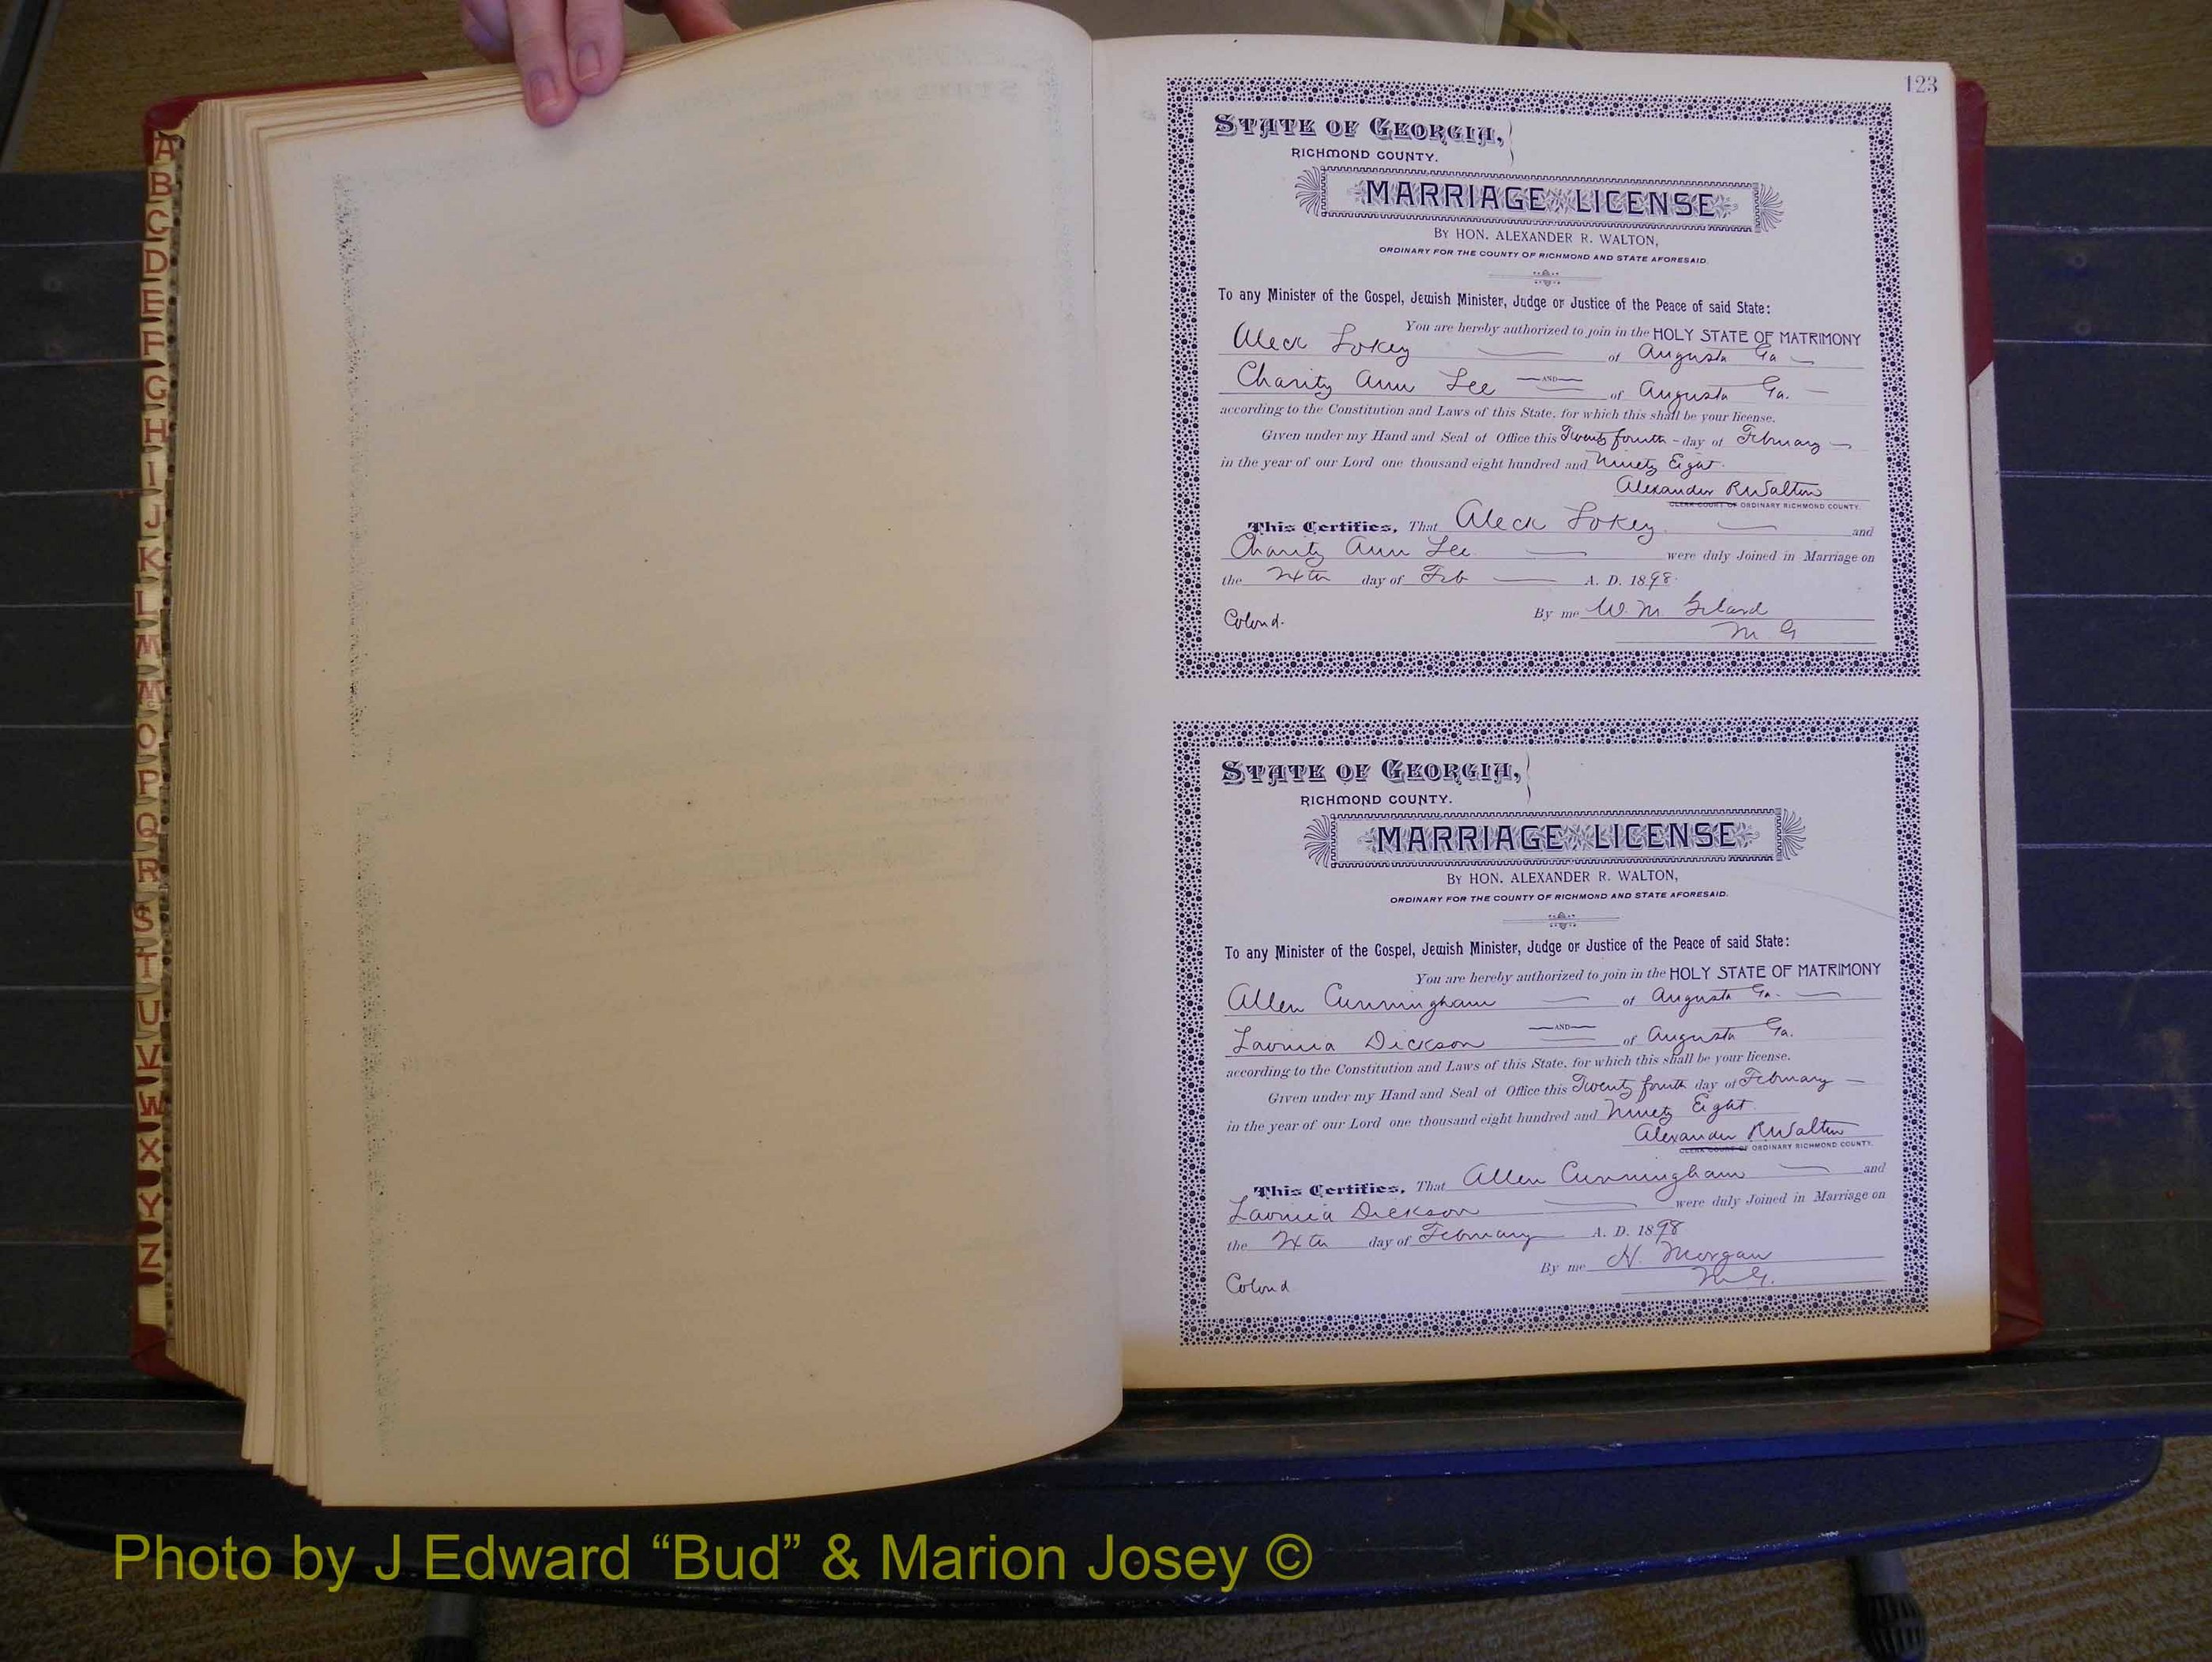 123
STATE OF GEORGIA,
RICHMOND COUNTY.
MARRIAGE LICENSE
BY HON. ALEXANDER R. WALTON,
ORDINARY FOR THE COUNTY OF RICHMOND AND STATE AFORESAID.
To any Minister of the Gospel, Jewish Minister, Judge or Justice of the Peace of said State:
You are hereby authorized to join in the HOLY STATE OF MATRIMONY
Aleck Lokey of Augusta Ga
AND
Charity Ann Lee of Augusta Ga.
according to the Constitution and Laws of this State, for which this shall be your license.
Given under my Hand and Seal of Office this Twenty fourth day of February
in the year of our Lord one thousand eight hundred and Ninety Eight.
Alexander R Walton
CLERK COURT OF ORDINARY RICHMOND COUNTY.
This Certifies, That Aleck Lokey and
Charity Ann Lee were duly Joined in Marriage on
the 24th day of Feb A. D. 1898.
By me W. M.
Colord. M G
STATE OF GEORGIA,
RICHMOND COUNTY.
MARRIAGE LICENSE
BY HON. ALEXANDER R. WALTON,
ORDINARY FOR THE COUNTY OF RICHMOND AND STATE AFORESAID.
To any Minister of the Gospel, Jewish Minister, Judge or Justice of the Peace of said State:
You are hereby authorized to join in the HOLY STATE OF MATRIMONY
Allen Cunningham of Augusta Ga.
AND
Lavinia Dickson of Augusta Ga.
according to the Constitution and Laws of this State, for which this shall be your license.
Given under my Hand and Seal of Office this Twenty fourth day of February
in the year of our Lord one thousand eight hundred and Ninety Eight.
Alexander R Walton
CLERK COURT OF ORDINARY RICHMOND COUNTY.
This Certifies, That Allen Cunningham and
Lavinia Dickson were duly Joined in Marriage on
the 24th day of February A. D. 1898
By me H. Morgan
Colord M. G.
A
B
C
D
E
F
G
H
I
J
K
L
M
M
O
P
Q
R
S
T
U
V
W
X
Y
Z
Photo by J Edward “Bud” & Marion Josey ©